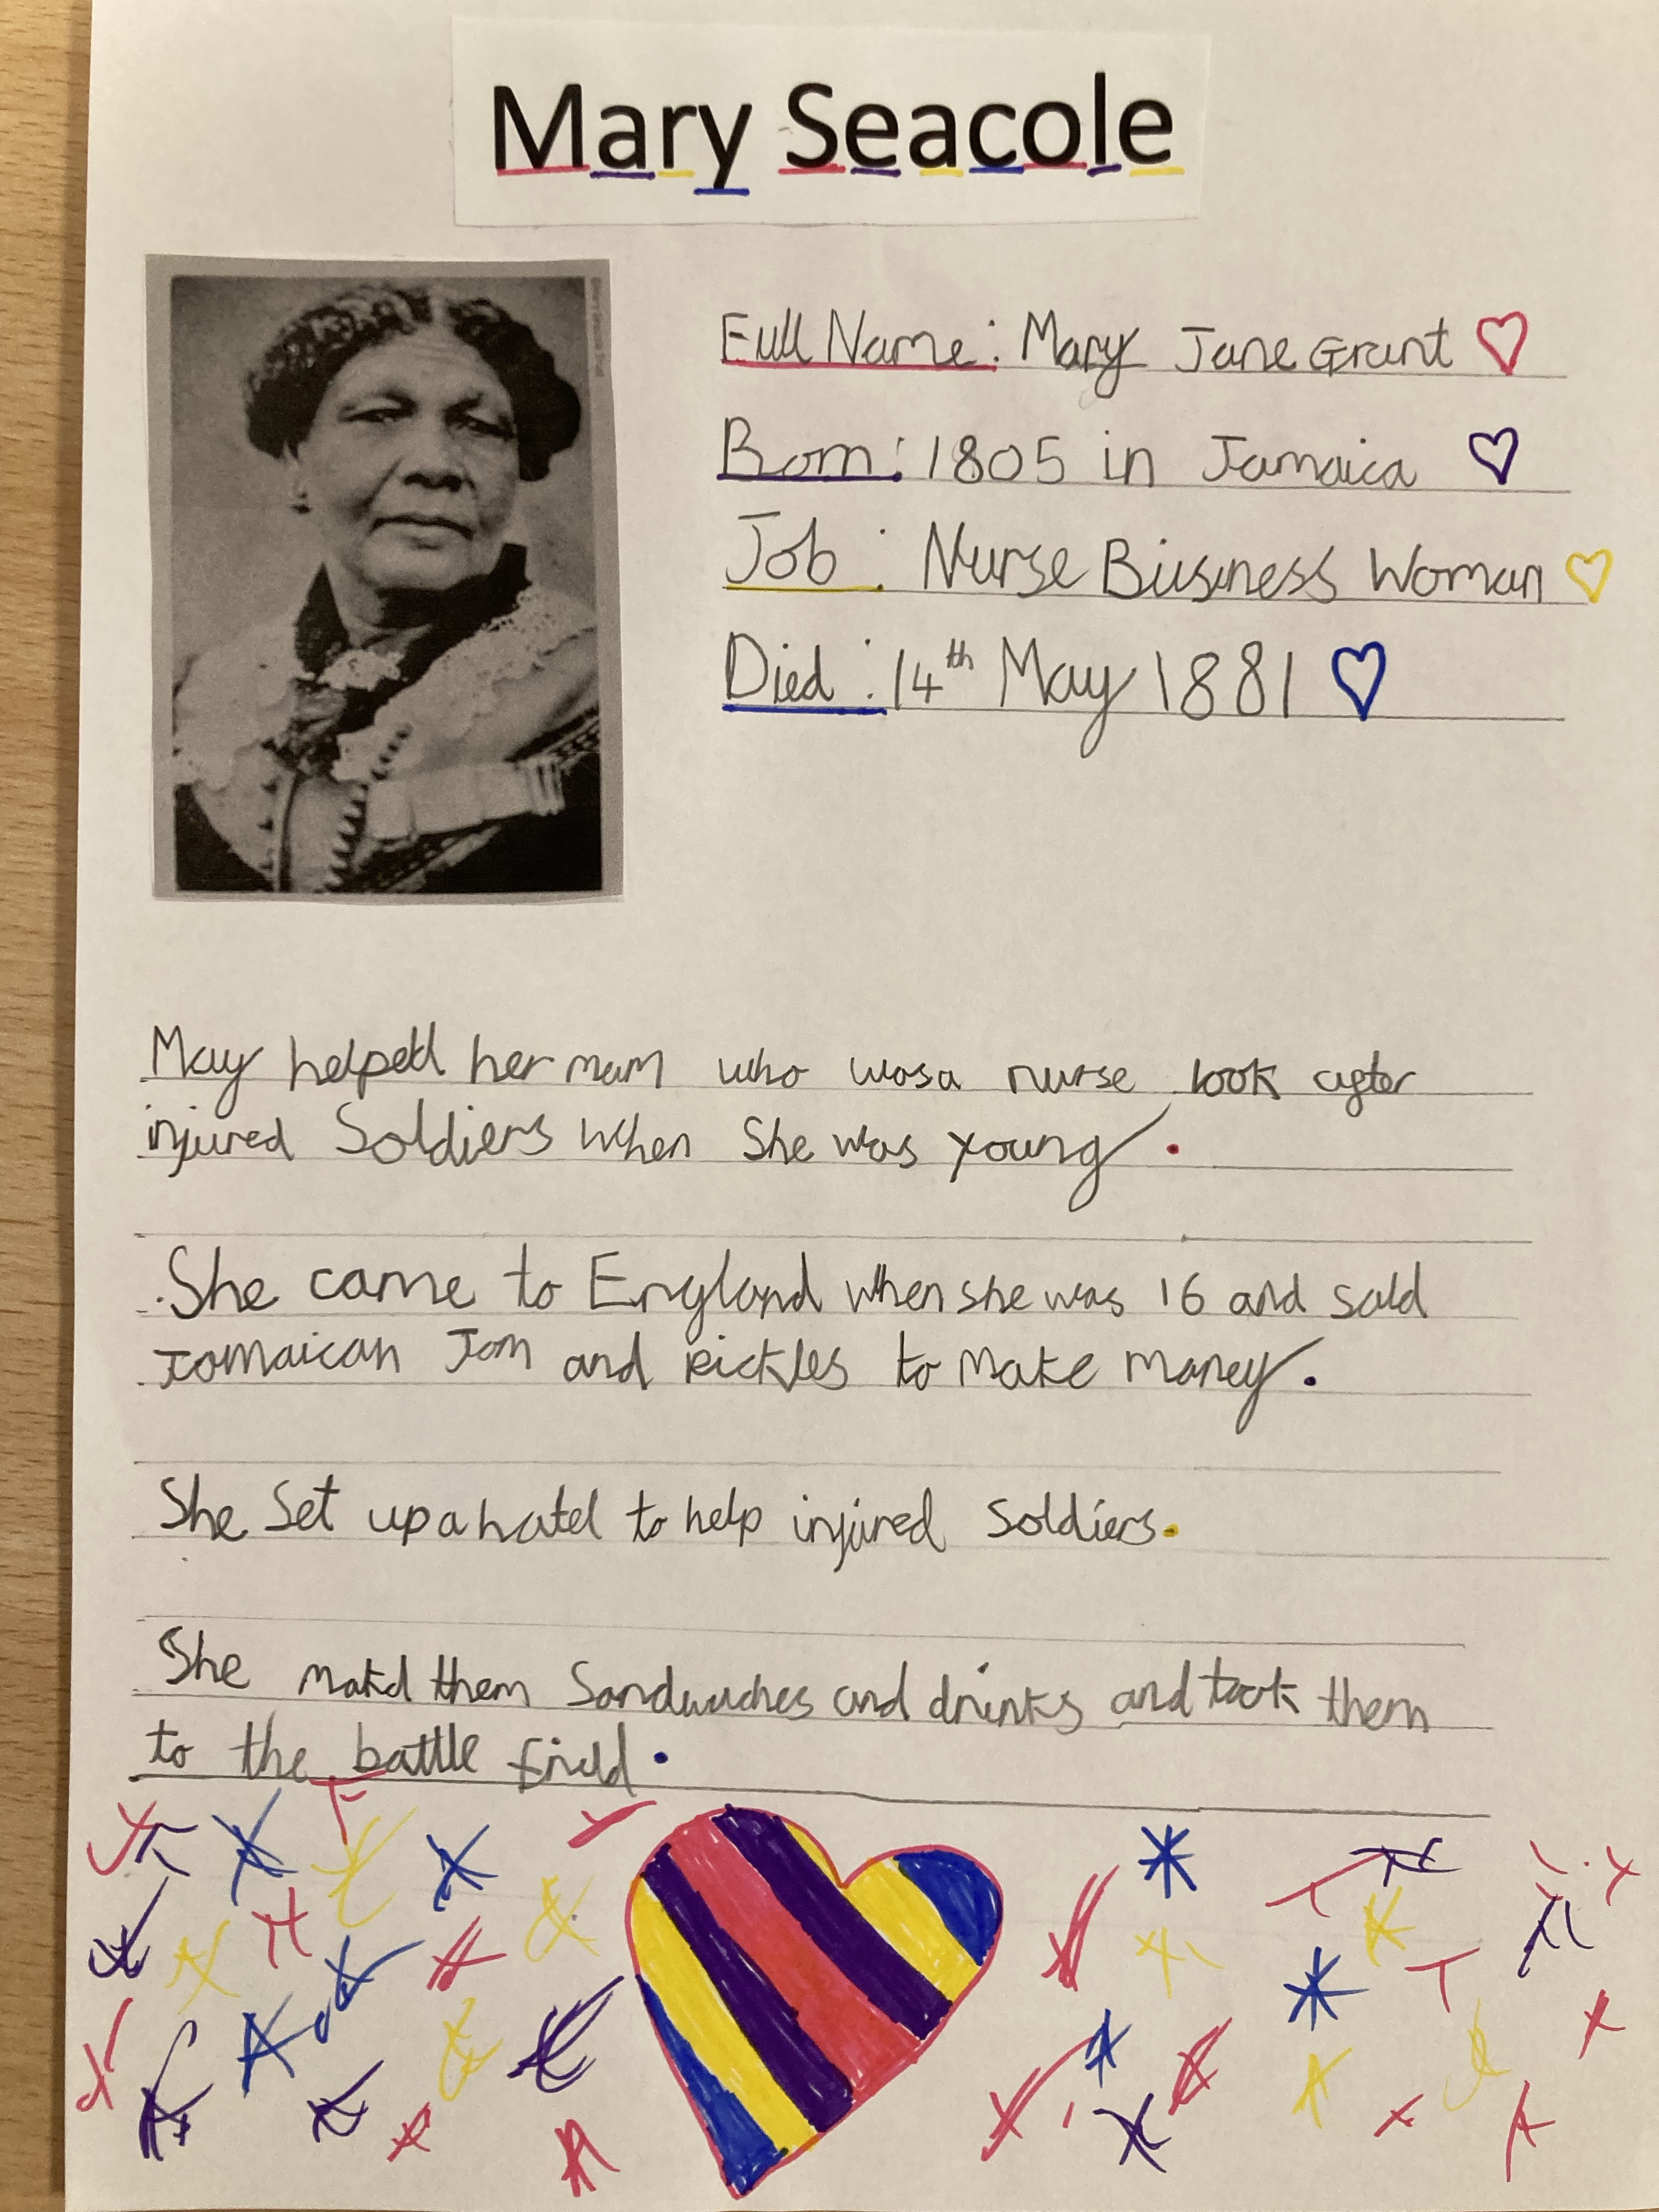 Mary Seacole
Full Name: Mary Jane Grant
Born: 1805 in Jamaica
Job: Nurse Business Woman
Died: 14th May 1881
May helped her mum who was a nurse look after
injured Soldiers when She was young.
She came to England when she was 16 and sold
Jamaican Jam and Pickles to make money.
She Set up a hotel to help injured Soldiers.
She makd them Sandwiches and drinks and took them
to the battle field.